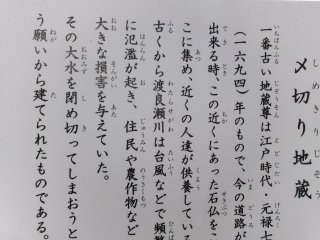 〆切り地蔵
しめきりじぞう
一番古い地蔵尊は江戸時代・元禄七
いちばんふる じぞうそん えどじだい げんろく
（一六九四）年のもので、今の道路が
出来る時、この近くにあった石仏をこ
こに集め、近くの人達が供養している
古くから渡良瀬川は台風などで頻繁
に氾濫が起き、住民や農作物など
大きな損害を与えていた。
その大水を閉め切ってしまおうと
う願いから建てられたものである。